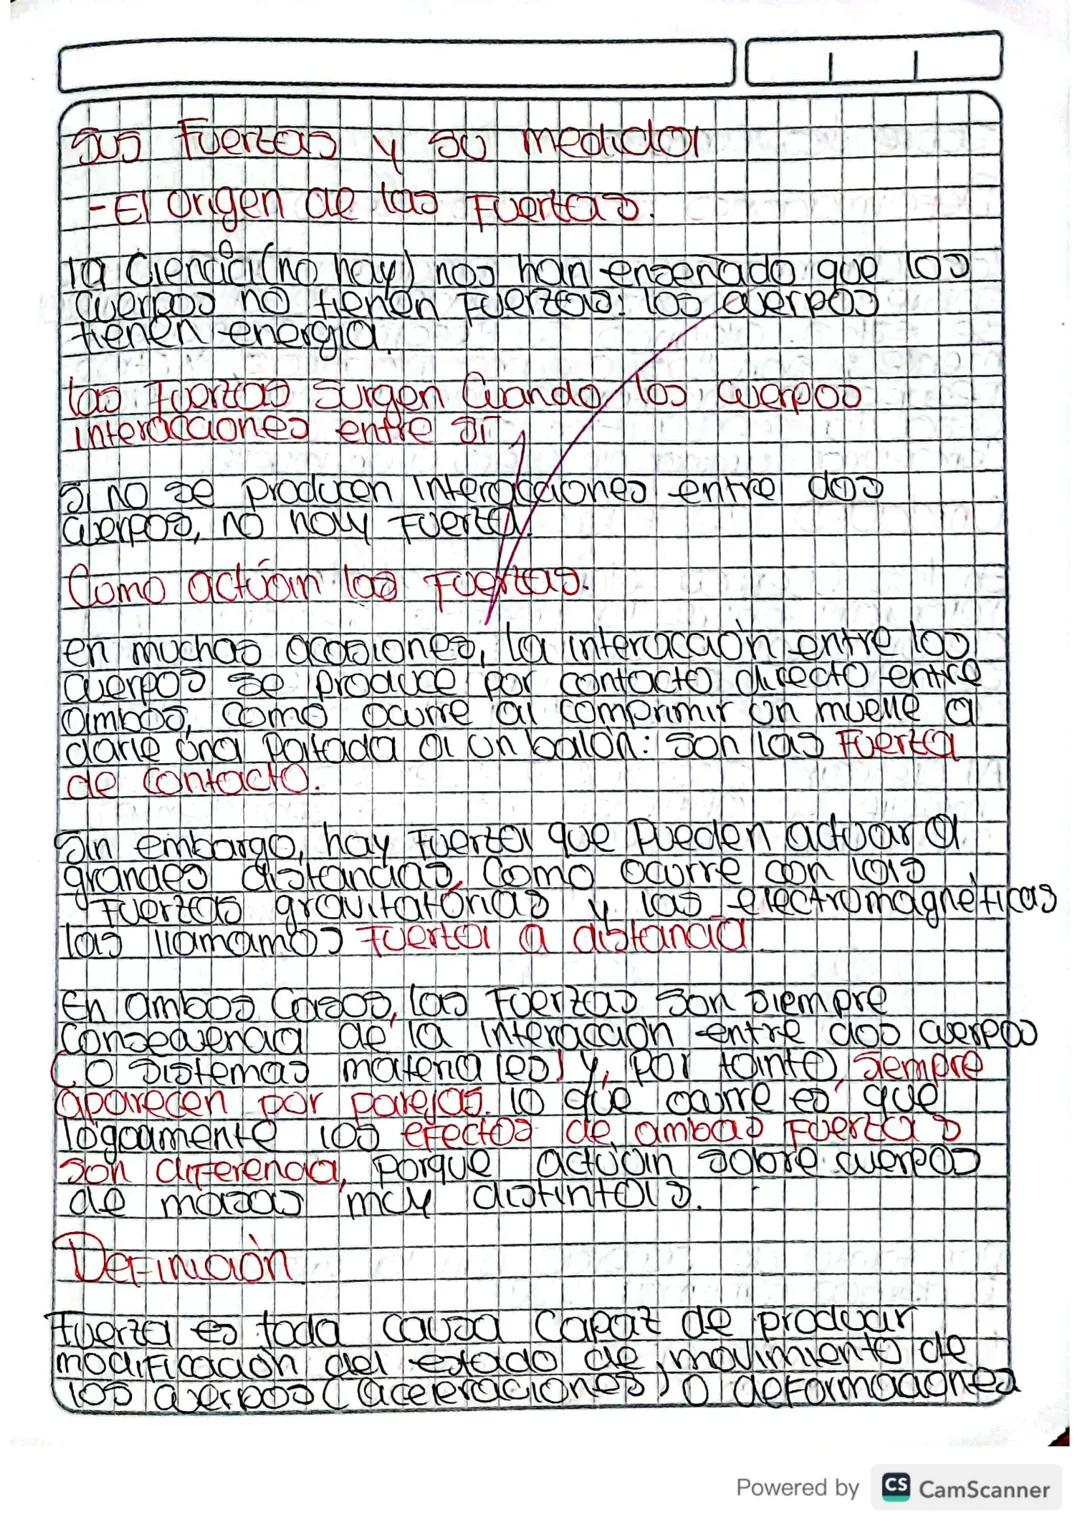 Sus Fuertas y su medidor
- El origen de las Fuertas.
la Ciencia (no hay) nos han ensenado que los
cuerpos no tienen Fuerzas: los cuerpos
tienen energia.
las Fuertas surgen Cuando los cuerpos
interacciones entre sí
Si no se producen interacciones entre dos
cuerpos, no hay Fuerta.
Como actúan las Fuertas.
en muchas ocasiones, la interacción entre los
cuerpos se produce por contacto directo entre
ambos, como ocurre al comprimir un muelle a
darle una patada a un balón: son las Fuerta
de contacto.
Sin embargo, hay Fuerta que pueden actuar a
grandes distancias, Como ocurre con las
Fuerzas gravitatorias y las electromagnéticas
las llamamos Fuerta a distancia.
En ambos Casos, las Fuerzas son siempre
consecuencia de la interacción entre dos cuerpos
(o sistemas materiales) y, por tanto, siempre
aparecen por parejas. lo que ocurre es que
logoamente los efectos de ambas Fuertas
son diferencia, porque actúan sobre cuerpos
de masas muy distintas.
Definición
Fuerza es toda causa Capaz de producir
modificación del estado de movimiento de
los cuerpos (aceleraciones) o deformaciones
Powered by CS CamScanner